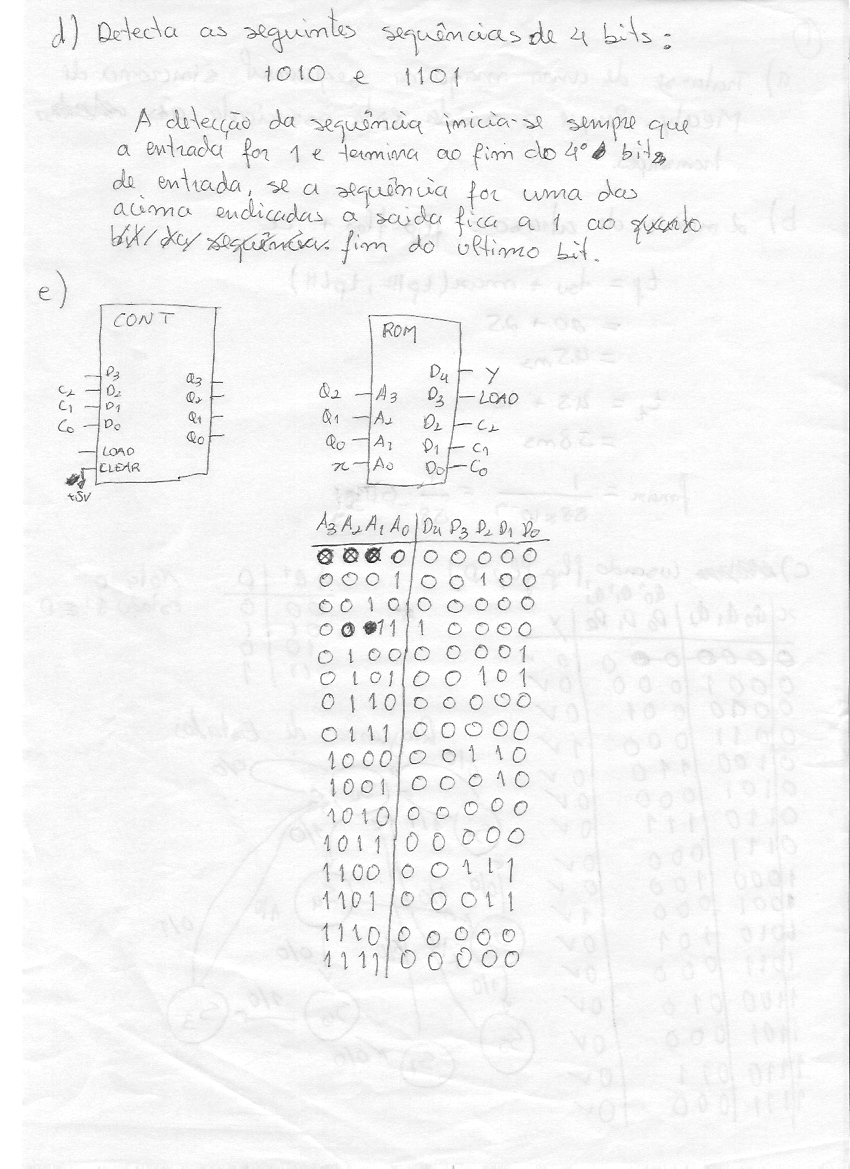 d) Detecta as seguintes sequências de 4 bits:
1010 e 1101
A detecção da sequência inicia-se sempre que
a entrada for 1 e termina ao fim do 4º bit
de entrada, se a sequência for uma das
acima endicadas a saida fica a 1 ao quarto
bit/da/sequência. fim do ultimo bit.
e)
CONT
D3 Q3
C2 D2 Q2
C1 D1 Q1
C0 D0 Q0
LOAD
CLEAR
+5V
ROM
D4 Y
Q2 A3 D3 LOAD
Q1 A2 D2 C2
Q0 A1 D1 C1
x A0 D0 C0
A3 A2 A1 A0 | D4 D3 D2 D1 D0
0 0 0 0 | 0 0 0 0 0
0 0 0 1 | 0 0 1 0 0
0 0 1 0 | 0 0 0 0 0
0 0 1 1 | 1 0 0 0 0
0 1 0 0 | 0 0 0 0 1
0 1 0 1 | 0 0 1 0 1
0 1 1 0 | 0 0 0 0 0
0 1 1 1 | 0 0 0 0 0
1 0 0 0 | 0 0 1 1 0
1 0 0 1 | 0 0 0 1 0
1 0 1 0 | 0 0 0 0 0
1 0 1 1 | 0 0 0 0 0
1 1 0 0 | 0 0 1 1 1
1 1 0 1 | 0 0 0 1 1
1 1 1 0 | 0 0 0 0 0
1 1 1 1 | 0 0 0 0 0